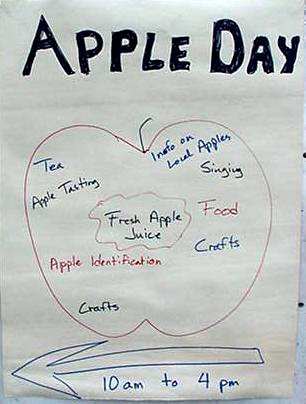 APPLE DAY
Info on
Local Apples
Tea
Singing
Apple Tasting
Fresh Apple
Juice
Food
Crafts
Apple Identification
Crafts
10 am to 4 pm